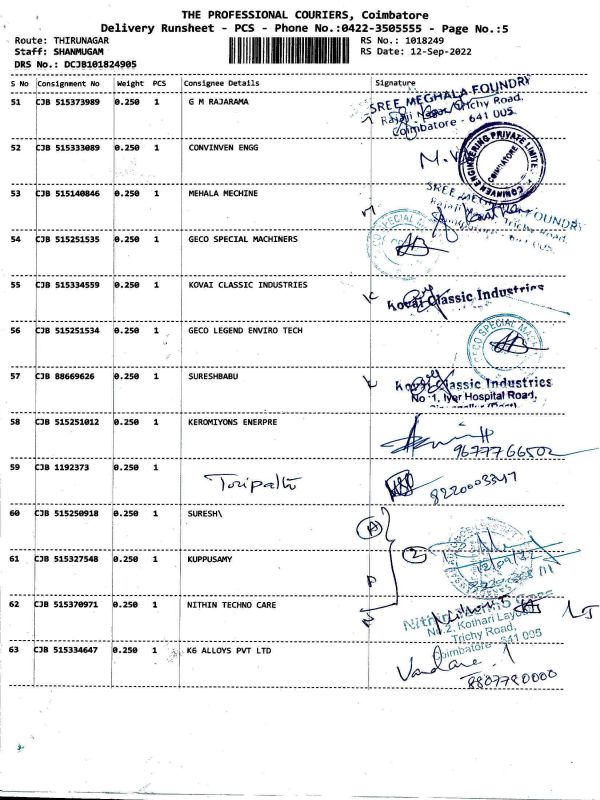 THE PROFESSIONAL COURIERS, Coimbatore
Delivery Runsheet - PCS - Phone No.:0422-3505555 - Page No.:5
Route: THIRUNAGAR
RS No.: 1018249
Staff: SHANMUGAM
RS Date: 12-Sep-2022
DRS No.: DCJB101824905
S No Consignment No Weight PCS Consignee Details Signature
51 CJB 515373989 0.250 1 G M RAJARAMA
SREE MEGHALA FOUNDRY
Rajaji Nagar, Trichy Road,
Coimbatore - 641 005
52 CJB 515333089 0.250 1 CONVINVEN ENGG
ENGINEERING PRIVATE LIMITED
COIMBATORE
53 CJB 515140846 0.250 1 MEHALA MECHINE
FOUNDRY
Trichy Road,
54 CJB 515251535 0.250 1 GECO SPECIAL MACHINERS
GECO SPECIAL
55 CJB 515334559 0.250 1 KOVAI CLASSIC INDUSTRIES
Kovai Classic Industries
56 CJB 515251534 0.250 1 GECO LEGEND ENVIRO TECH
GECO SPECIAL
57 CJB 88669626 0.250 1 SURESHBABU
Kovai Classic Industries
No :1, Iyer Hospital Road,
58 CJB 515251012 0.250 1 KEROMIYONS ENERPRE
9677766502
59 CJB 1192373 0.250 1
60 CJB 515250918 0.250 1 SURESH\
61 CJB 515327548 0.250 1 KUPPUSAMY
2
62 CJB 515370971 0.250 1 NITHIN TECHNO CARE
Nithin
No 2, Kothari Layout
Trichy Road,
Coimbatore - 641 005
63 CJB 515334647 0.250 1 K6 ALLOYS PVT LTD